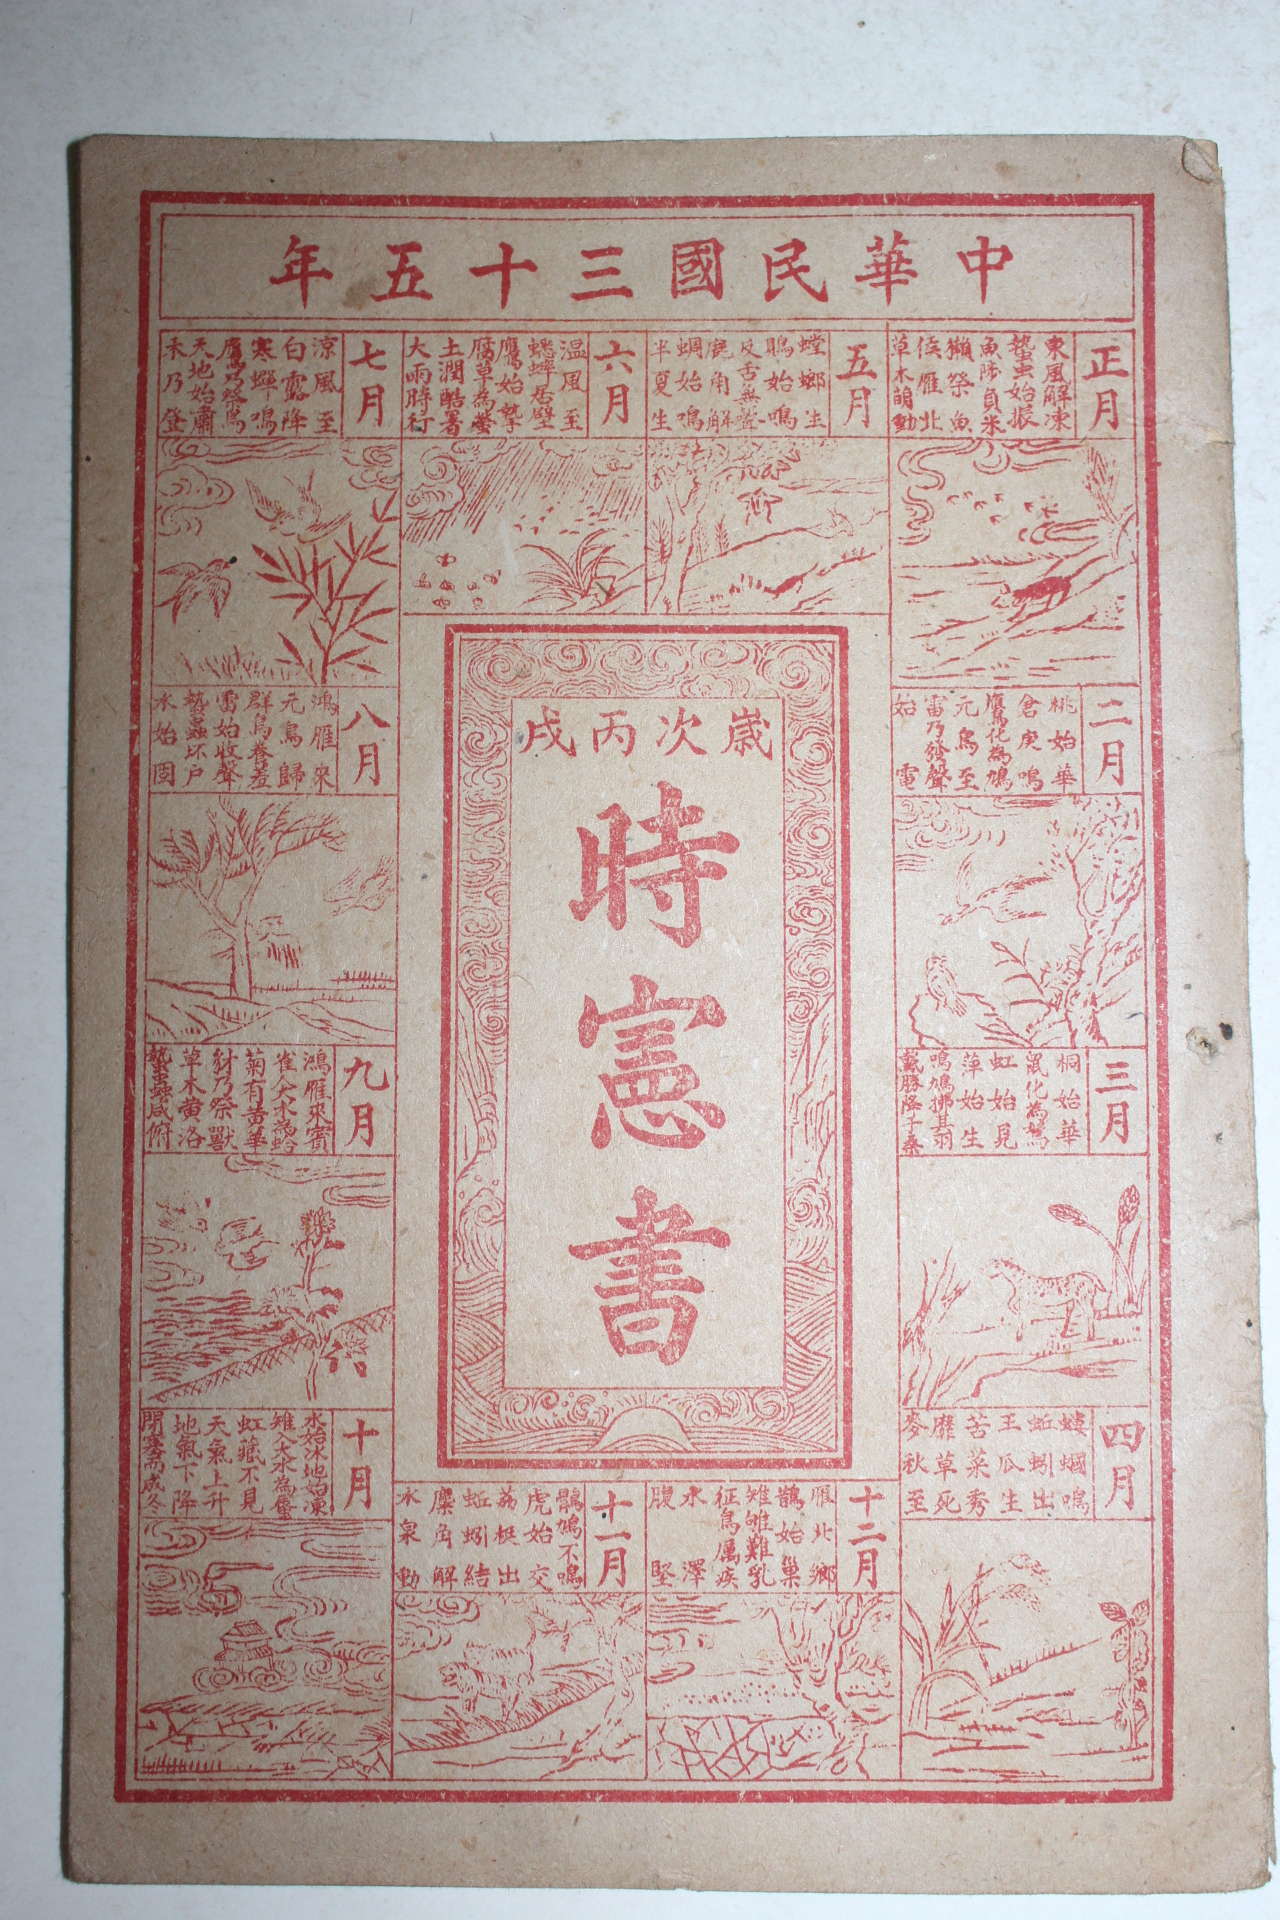 中華民國三十五年
歲次丙戌
時憲書
正月
東風解凍
蟄虫始振
魚陟負氷
獺祭魚
候雁北
草木萌動
二月
桃始華
倉庚鳴
鷹化為鳩
元鳥至
雷乃發聲
始電
三月
桐始華
鼠化為鴽
虹始見
萍始生
鳴鳩拂其羽
戴勝降于桑
四月
螻蟈鳴
蚯蚓出
王瓜生
苦菜秀
靡草死
麥秋至
五月
螳螂生
鵙始鳴
反舌無聲
鹿角解
蜩始鳴
半夏生
六月
溫風至
蟋蟀居壁
鷹始摯
腐草為螢
土潤酷暑
大雨時行
七月
涼風至
白露降
寒蟬鳴
鷹乃祭鳥
天地始肅
禾乃登
八月
鴻雁來
元鳥歸
群鳥養羞
雷始收聲
蟄蟲坯户
水始固
九月
鴻雁來賓
雀入大水為蛤
菊有黃華
豺乃祭獸
草木黃洛
蟄蟲咸俯
十月
水始冰地始凍
雉入大水為蜃
虹藏不見
天氣上升
地氣下降
閉塞成冬
十一月
鶡鳩不鳴
虎始交
荔梃出
蚯蚓結
麋角解
水泉動
十二月
雁北鄉
鵲始巢
雉雊雞乳
征鳥厲疾
水澤
腹堅